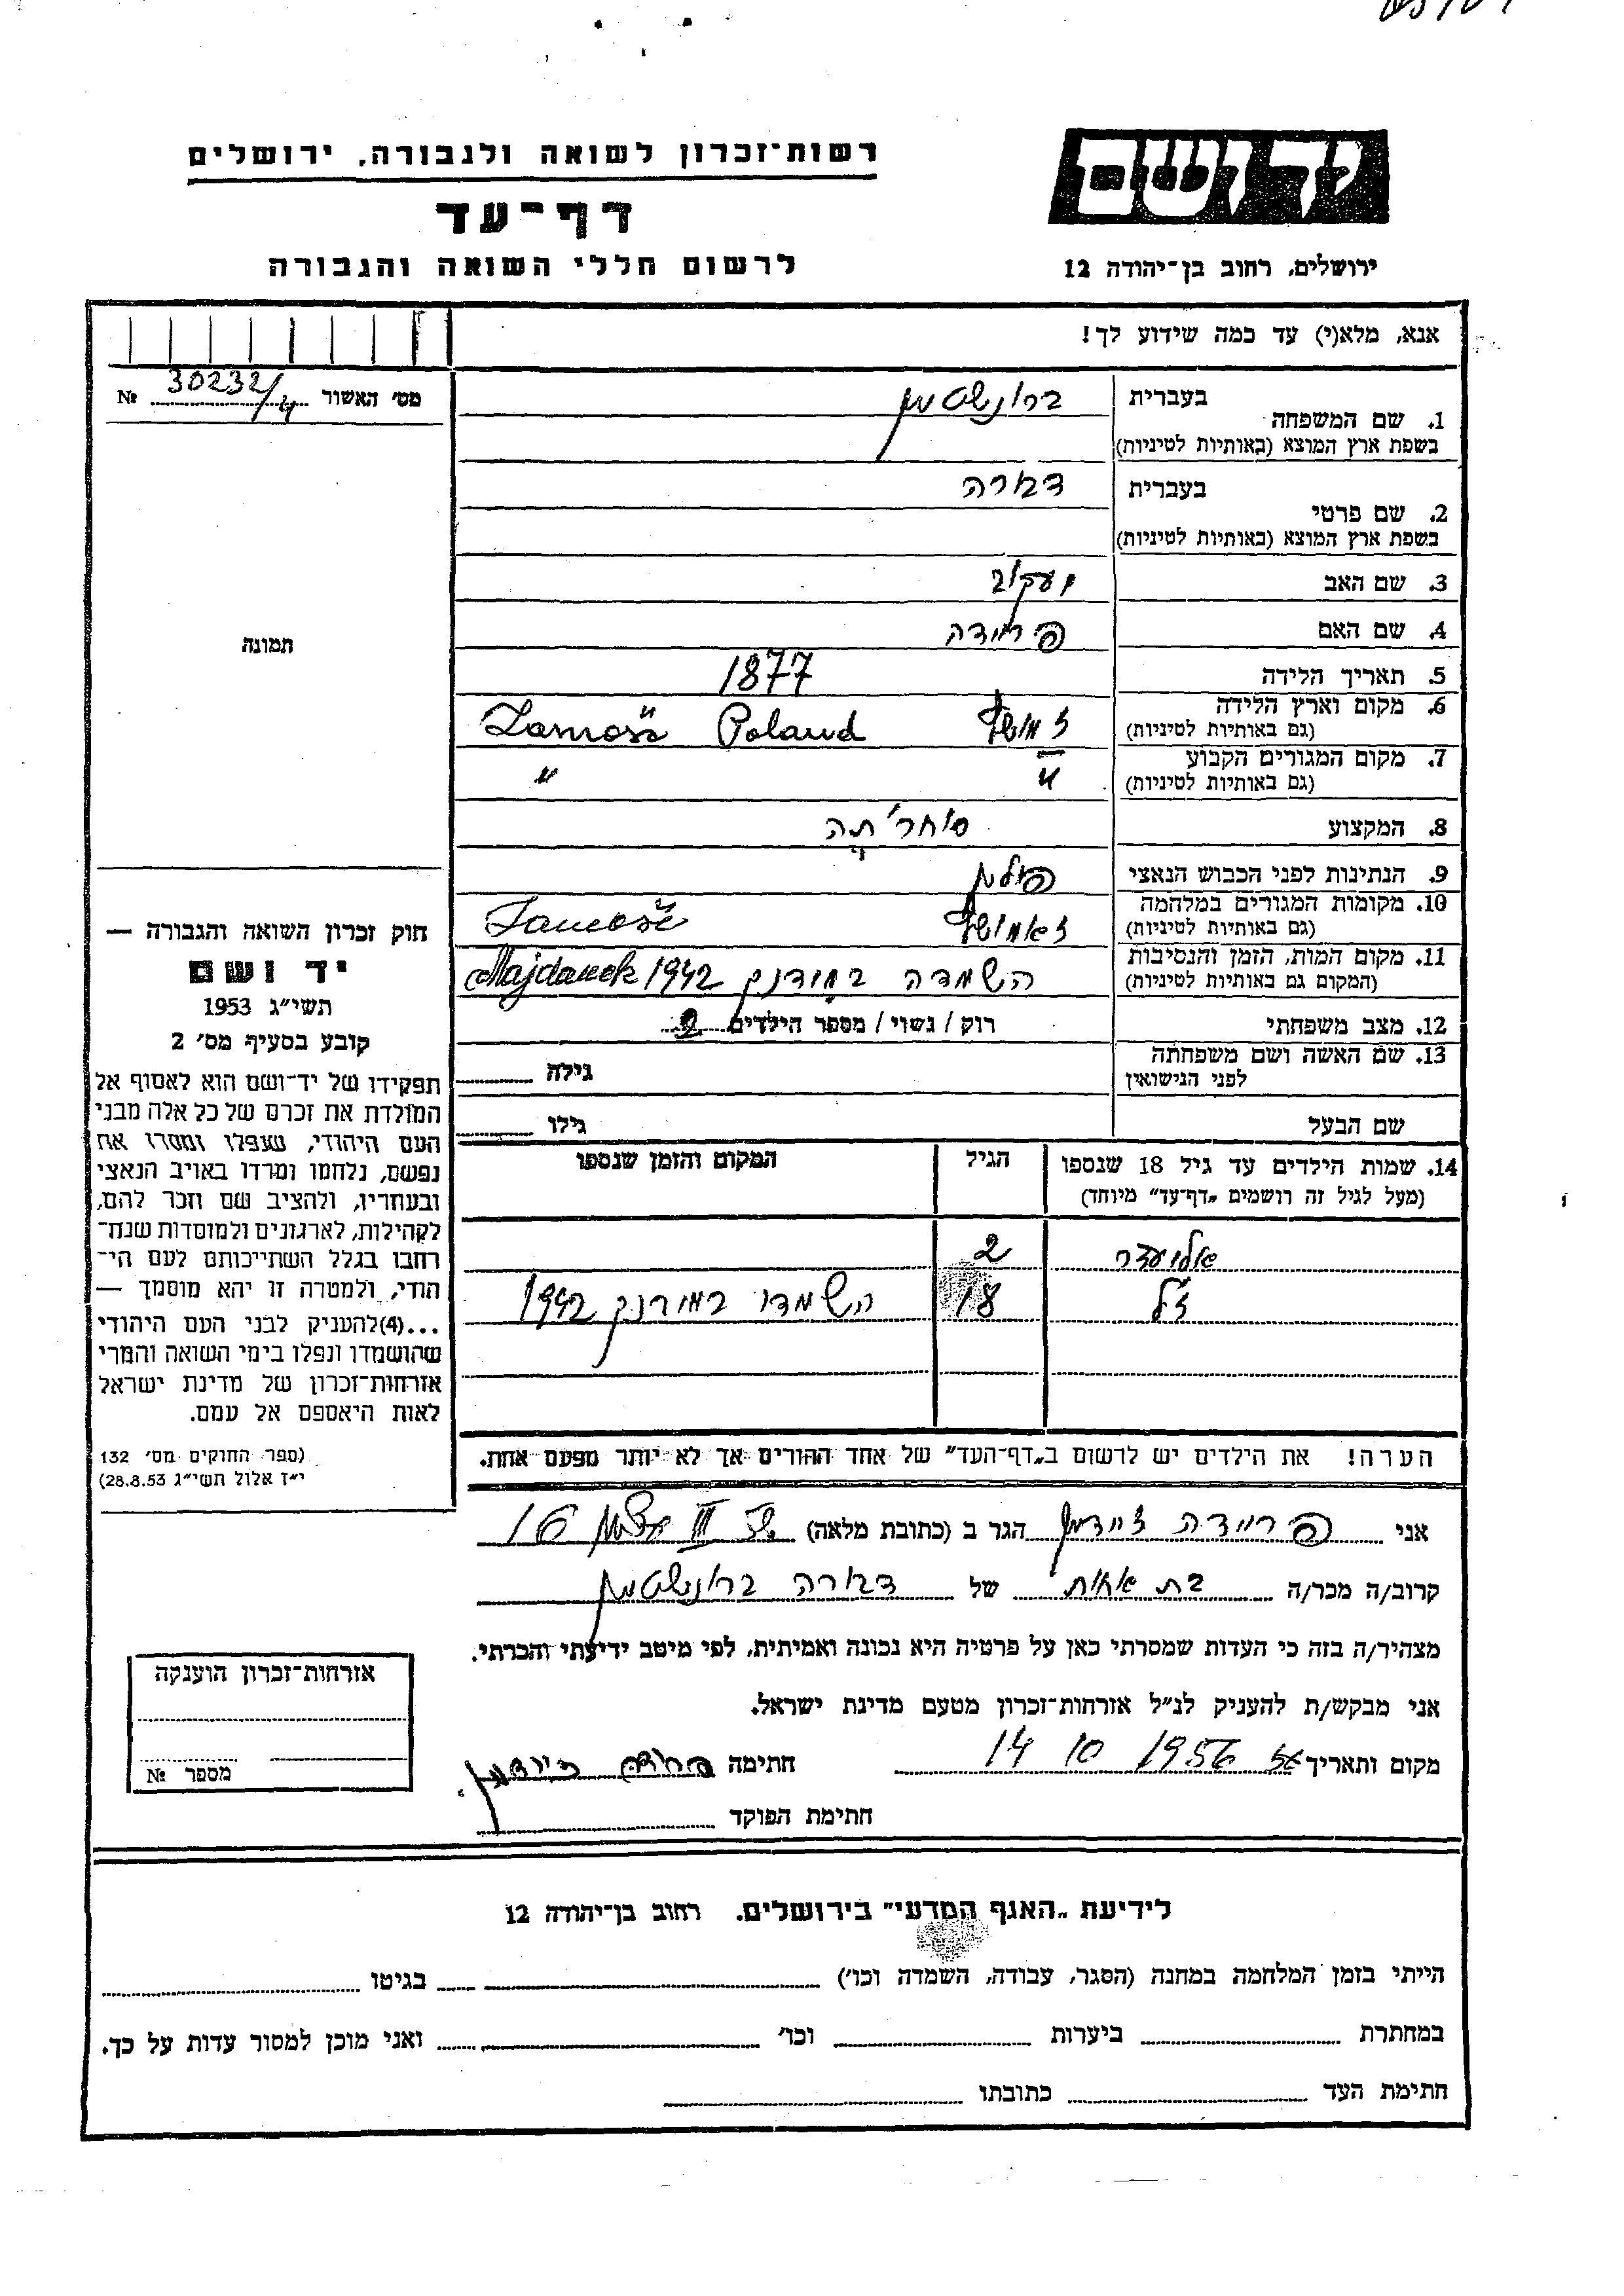 יד ושם
ירושלים, רחוב בן־יהודה 12
רשות־זכרון לשואה ולגבורה, ירושלים
דף־עד
לרשום חללי השואה והגבורה
אנא, מלא(י) עד כמה שידוע לך!
מס׳ האשור 30232/4 №
1. שם המשפחה בעברית ברונשטיין
בשפת ארץ המוצא (באותיות לטיניות)
2. שם פרטי בעברית דבורה
בשפת ארץ המוצא (באותיות לטיניות)
3. שם האב יעקוב
4. שם האם פריידה
5. תאריך הלידה 1877
6. מקום וארץ הלידה (גם באותיות לטיניות) Poland Zamosz
7. מקום המגורים הקבוע (גם באותיות לטיניות) " "
8. המקצוע
9. הנתינות לפני הכבוש הנאצי פולין
10. מקומות המגורים במלחמה (גם באותיות לטיניות) Zamosz
11. מקום המות, הזמן והנסיבות (המקום גם באותיות לטיניות) השמדה במידנק 1942 Majdanek
12. מצב משפחתי רוק / נשוי / מספר הילדים 2
13. שם האשה ושם משפחתה לפני הנישואין גילה
שם הבעל גילו
14. שמות הילדים עד גיל 18 שנספו (מעל לגיל זה רושמים „דף־עד” מיוחד) הגיל המקום והזמן שנספו
2
18 השמדו במידנק 1942
הערה! את הילדים יש לרשום ב„דף־העד” של אחד ההורים אך לא יותר מפעם אחת.
תמונה
חוק זכרון השואה והגבורה —
יד ושם
תשי״ג 1953
קובע בסעיף מס׳ 2
תפקידו של יד־ושם הוא לאסוף אל
המולדת את זכרם של כל אלה מבני
העם היהודי, שנפלו ומסרו את
נפשם, נלחמו ומרדו באויב הנאצי
ובעוזריו, ולהציב שם וזכר להם,
לקהילות, לארגונים ולמוסדות שנח־
רבו בגלל השתייכותם לעם הי־
הודי, ולמטרה זו יהא מוסמך —
...(4)להעניק לבני העם היהודי
שהושמדו ונפלו בימי השואה והמרי
אזרחות־זכרון של מדינת ישראל
לאות היאספם אל עמם.
(ספר החוקים מס׳ 132
י״ז אלול תשי״ג 28.8.53)
אני פריידה זיידמן הגר ב (כתובת מלאה) III 16
קרוב/ה מכר/ה בת אחות של דבורה ברונשטיין
מצהיר/ה בזה כי העדות שמסרתי כאן על פרטיה היא נכונה ואמיתית, לפי מיטב ידיעתי והכרתי.
אני מבקש/ת להעניק לנ״ל אזרחות־זכרון מטעם מדינת ישראל.
מקום ותאריך 14 10 1956 חתימה פריידה זיידמן
חתימת הפוקד
אזרחות־זכרון הוענקה
מספר №
לידיעת „האגף המדעי” בירושלים. רחוב בן־יהודה 12
הייתי בזמן המלחמה במחנה (הסגר, עבודה, השמדה וכו׳) בגיטו
במחתרת ביערות וכו׳ ואני מוכן למסור עדות על כך.
חתימת העד כתובתו